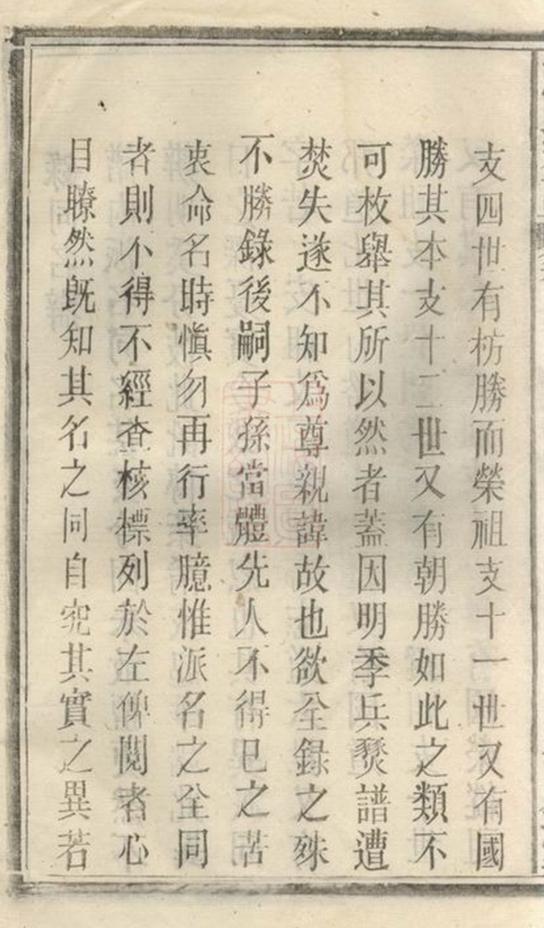 支四世有枋勝而榮祖支十一世又有國
勝其本支十二世又有朝勝如此之類不
可枚舉其所以然者蓋因明季兵燹譜遭
焚失遂不知爲尊親諱故也欲全錄之殊
不勝錄後嗣子孫當體先人不得已之苦
衷命名時慎勿再行率臆惟派名之全同
者則不得不經查核標列於左俾閱者心
目瞭然既知其名之同自究其實之異若